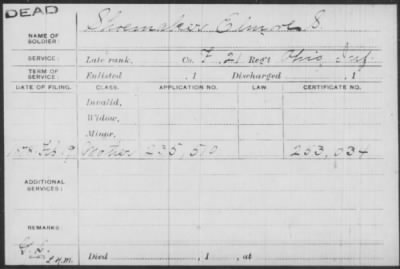 DEAD
NAME OF SOLDIER: Shoemaker Elmore S.
SERVICE: Late rank, Co. F, 21 Reg't Ohio Inf.
TERM OF SERVICE: Enlisted , 1 Discharged , 1
DATE OF FILING. CLASS. APPLICATION NO. LAW. CERTIFICATE NO.
Invalid,
Widow,
Minor,
Mother 233,534
ADDITIONAL SERVICES:
REMARKS:
Died , 1 , at